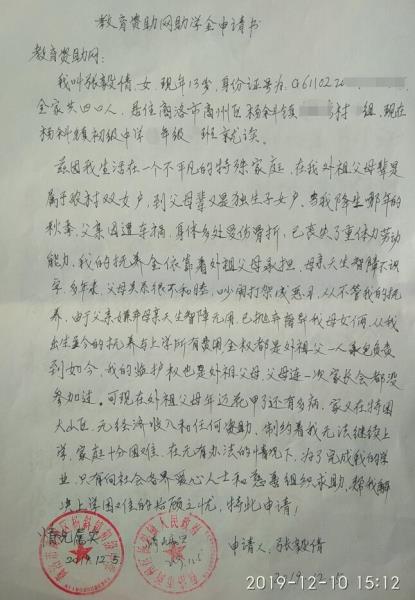 教育资助网助学金申请书
教育资助网:
我叫张毅倩,女,现年13岁,身份证号为:G6110220
全家共四口人,居住商洛市商州区杨斜镇 村 组,现在
杨斜镇初级中学 年级 班就读。
兹因我生活在一个不平凡的特殊家庭,在我外祖父母辈是
属于农村双女户,到父母辈又是独生子女户。当我降生那年的
秋季,父亲因遭车祸,身体多处受伤骨折,已丧失了重体力劳动
能力,我的抚养全依靠着外祖父母承担,母亲天生智障不识
字,多年来,父母关系很不和睦,吵闹打架成恶习,从不管我的抚
养,由于父亲嫌弃母亲天生智障无用,已抛弃 我母女俩,从我
出生至今的抚养与上学所有费用全权都是外祖父一人来负责
到如今,我的监护权也是外祖父母,父母连一次家长会都没
参加过。可现在外祖父母年迈花甲了还有多病,家又在特困
大山区,无经济收入和任何资助,制约着我无法继续上
学,家庭十分困难,在无有办法的情况下,为了完成我的学
业,只有向社会各界爱心人士和慈善组织求助,帮我解
决上学困难的后顾之忧,特此申请!
情况属实
2019.12.5
申请人:张毅倩
2019-12-10 15:12